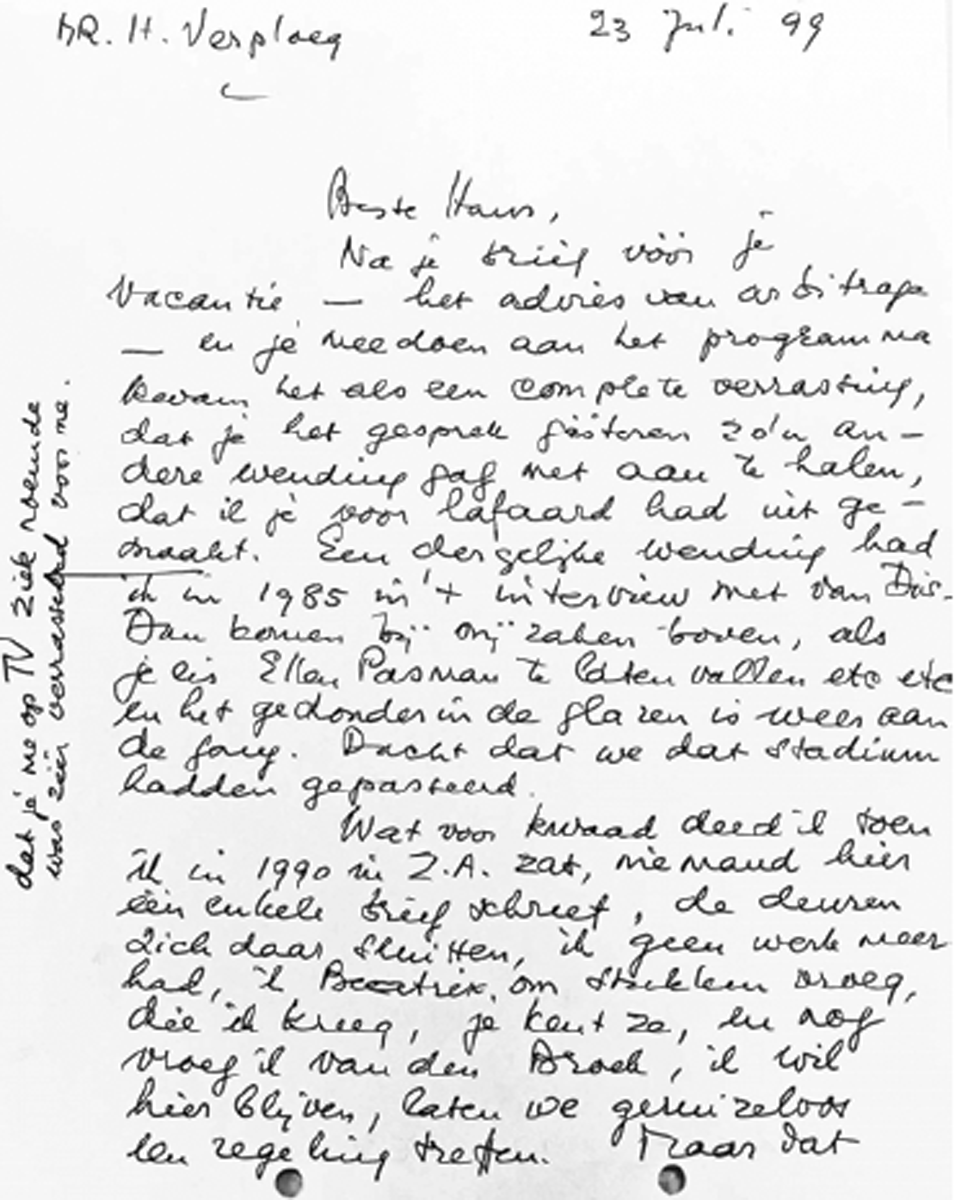 DR. H. Verploeg
23 Juli 99
Beste Hans,
Na je brief vóór je
vacantie — het advies van arbitrage
— en je meedoen aan het programma
kwam het als een complete verrassing,
dat je het gesprek gisteren zo'n an-
dere wending gaf met aan te halen,
dat ik je voor lafaard had uit ge-
maakt. Een dergelijke wending had
ik in 1985 in 't interview met van Dis.
Dan komen bij mij zaken boven, als
je eis Ellen Pasman te laten vallen etc etc
en het gedonder in de glazen is weer aan
de gang. Dacht dat we dat stadium
hadden gepasseerd.
Wat voor kwaad deed ik toen
ik in 1990 in Z.A. zat, niemand hier
één enkele brief schreef, de deuren
zich daar sluitten, ik geen werk meer
had, ik Beatrix om stukken vroeg,
die ik kreeg, je kent ze, en nog
vroeg ik van den Broek, ik wil
hier blijven, laten we geruizeloos
een regeling treffen. Maar dat
dat je me op TV ziek noemde
was zéér verrassend voor me.